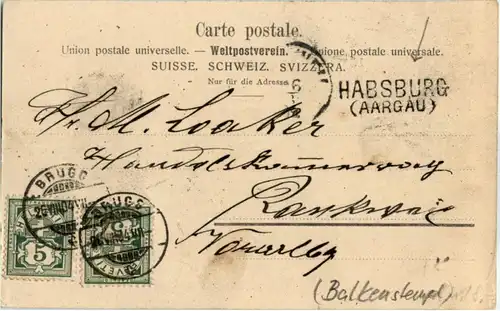 Carte postale.
Union postale universelle. — Weltpostverein. — Unione postale universale.
SUISSE. SCHWEIZ. SVIZZERA.
Nur für die Adresse
HABSBURG
(AARGAU)
Fr. M. Loaker
Rankweil
Vorarlbg
BRUGG
BRUGG
5
5
(Balkenstempel)